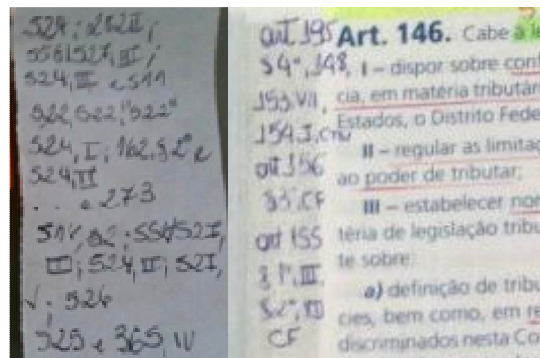 524; 282II;
558/527, III;
524, III e 511
522, 522, "522"
524, I; 162, § 2º e
524, II
. . e 273
511, § 2; 558/527,
III; 524, II; 527,
V; 526
525 e 365, IV
art 195
§ 4º, 148,
153, VII,
154, I, CF
art 156
§ 3º, CF
art 155
§ 1º, III,
§ 2º, XII
CF
Art. 146. Cabe à le
I – dispor sobre conf
cia, em matéria tributár
Estados, o Distrito Fede
II – regular as limitaç
ao poder de tributar;
III – estabelecer nor
téria de legislação tribu
te sobre:
a) definição de tribu
cies, bem como, em re
discriminados nesta Co